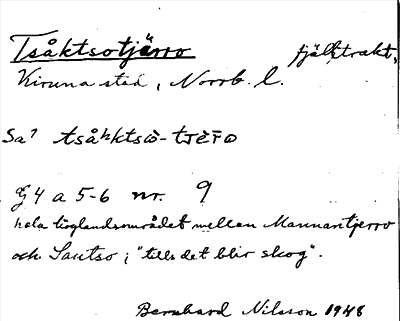 Tsåktsotjärro fjälltrakt,
Kiruna stad, Norrb. l.
Sa? tsåhktsò-tjèr̄o
G4 a 5-6 nr. 9
hela höglandsområdet mellan Mannartjerro
och Sautso; "tills det blir skog".
Bernhard Nilsson 1948